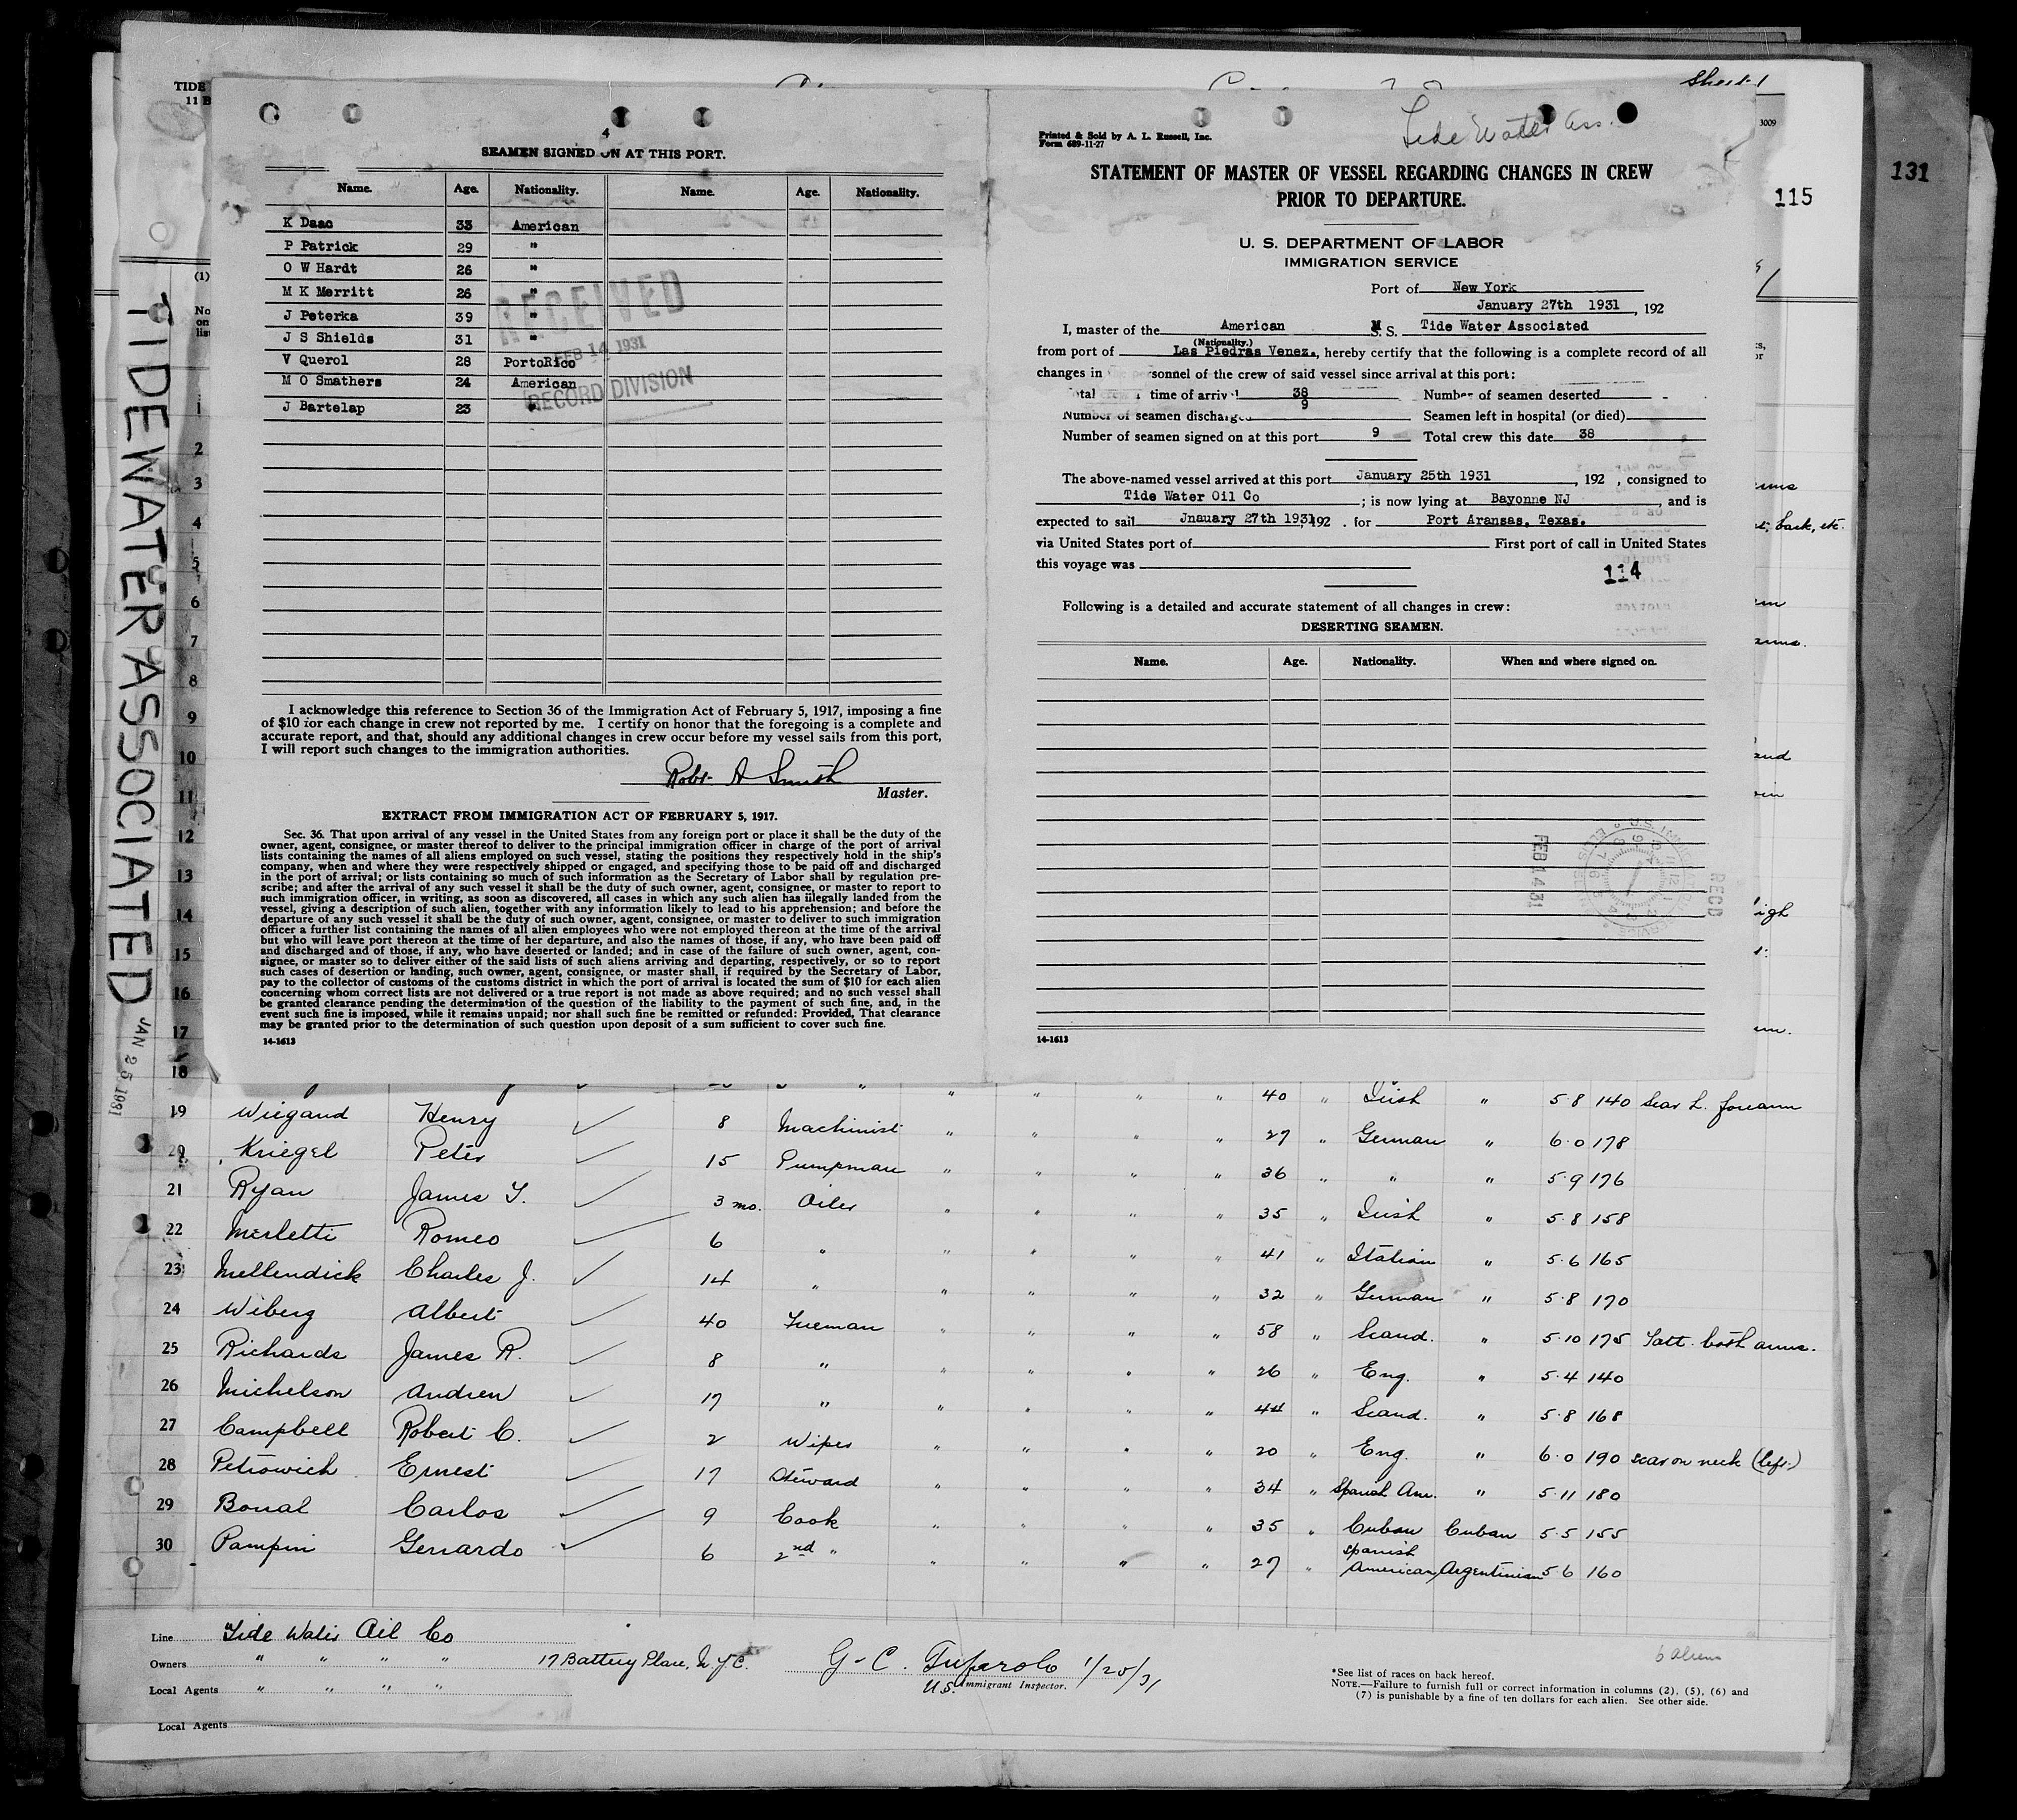 Sheet 1
TIDE
11 B
3009
131
115
4
SEAMEN SIGNED ON AT THIS PORT.
Name. Age. Nationality. Name. Age. Nationality.
K Daac 33 American
P Patrick 29 "
O W Hardt 26 "
M K Merritt 26 "
J Peterka 39 "
J S Shields 31 "
V Querol 28 PortoRico
M O Smathers 24 American
J Bartelap 23 "
RECEIVED
FEB 14 1931
RECORD DIVISION
I acknowledge this reference to Section 36 of the Immigration Act of February 5, 1917, imposing a fine
of $10 for each change in crew not reported by me. I certify on honor that the foregoing is a complete and
accurate report, and that, should any additional changes in crew occur before my vessel sails from this port,
I will report such changes to the immigration authorities.
Robt A Smith
Master.
EXTRACT FROM IMMIGRATION ACT OF FEBRUARY 5, 1917.
Sec. 36. That upon arrival of any vessel in the United States from any foreign port or place it shall be the duty of the
owner, agent, consignee, or master thereof to deliver to the principal immigration officer in charge of the port of arrival
lists containing the names of all aliens employed on such vessel, stating the positions they respectively hold in the ship's
company, when and where they were respectively shipped or engaged, and specifying those to be paid off and discharged
in the port of arrival; or lists containing so much of such information as the Secretary of Labor shall by regulation pre-
scribe; and after the arrival of any such vessel it shall be the duty of such owner, agent, consignee, or master to report to
such immigration officer, in writing, as soon as discovered, all cases in which any such alien has illegally landed from the
vessel, giving a description of such alien, together with any information likely to lead to his apprehension; and before the
departure of any such vessel it shall be the duty of such owner, agent, consignee, or master to deliver to such immigration
officer a further list containing the names of all alien employees who were not employed thereon at the time of the arrival
but who will leave port thereon at the time of her departure, and also the names of those, if any, who have been paid off
and discharged and of those, if any, who have deserted or landed; and in case of the failure of such owner, agent, con-
signee, or master so to deliver either of the said lists of such aliens arriving and departing, respectively, or so to report
such cases of desertion or landing, such owner, agent, consignee, or master shall, if required by the Secretary of Labor,
pay to the collector of customs of the customs district in which the port of arrival is located the sum of $10 for each alien
concerning whom correct lists are not delivered or a true report is not made as above required; and no such vessel shall
be granted clearance pending the determination of the question of the liability to the payment of such fine, and, in the
event such fine is imposed, while it remains unpaid; nor shall such fine be remitted or refunded: Provided, That clearance
may be granted prior to the determination of such question upon deposit of a sum sufficient to cover such fine.
14-1613
Tide Water Ass.
Printed & Sold by A. L. Russell, Inc.
Form 689-11-27
STATEMENT OF MASTER OF VESSEL REGARDING CHANGES IN CREW
PRIOR TO DEPARTURE.
U. S. DEPARTMENT OF LABOR
IMMIGRATION SERVICE
Port of New York
January 27th 1931, 192
I, master of the American M S. S. Tide Water Associated
(Nationality.)
from port of Las Piedras Venez., hereby certify that the following is a complete record of all
changes in personnel of the crew of said vessel since arrival at this port:
Total crew time of arrival 38 Number of seamen deserted -
Number of seamen discharged 9 Seamen left in hospital (or died)
Number of seamen signed on at this port 9 Total crew this date 38
The above-named vessel arrived at this port January 25th 1931, 192 , consigned to
Tide Water Oil Co; is now lying at Bayonne NJ, and is
expected to sail Jnauary 27th 1931, 192 . for Port Aransas, Texas.
via United States port of First port of call in United States
this voyage was
114
Following is a detailed and accurate statement of all changes in crew:
DESERTING SEAMEN.
Name. Age. Nationality. When and where signed on.
FEB 14 31
RECD
14-1613
TIDEWATER ASSOCIATED JAN 25 1931
(1)
1
2
3
4
5
6
7
8
9
10
11
12
13
14
15
16
17
18
40 " Irish " 5-8 140 Scar L. forearm
19 Wiegand Henry 8 Machinist " " " " 27 " German " 6-0 178
20 Kriegel Peter 15 Pumpman " " " " 36 " " " 5-9 176
21 Ryan James T. 3 mo. Oiler " " " " 35 " Irish " 5-8 158
22 Merletti Romeo 6 " " " " " 41 " Italian " 5-6 165
23 Mellendick Charles J. 14 " " " " " 32 " German " 5-8 170
24 Wiberg Albert 40 Fireman " " " " 58 " Scand. " 5-10 175 Tatt. both arms.
25 Richards James R. 8 " " " " " 26 " Eng. " 5-4 140
26 Michelson Andrew 17 " " " " " 44 " Scand. " 5-8 168
27 Campbell Robert C. 2 Wiper " " " " 20 " Eng. " 6-0 190 scar on neck (left)
28 Petrowich Ernest 17 Steward " " " " 34 " Spanish Am. " 5-11 180
29 Bonal Carlos 9 Cook " " " " 35 " Cuban Cuban 5-5 155
30 Pampin Gerardo 6 2nd " " " " " 27 " Spanish American Argentinian 5-6 160
Line Tide Water Oil Co
Owners " " " " 17 Battery Place, N.Y.C.
Local Agents " " " "
Local Agents
1/25/31
U.S. Immigrant Inspector.
6 aliens
*See list of races on back hereof.
NOTE.—Failure to furnish full or correct information in columns (2), (5), (6) and
(7) is punishable by a fine of ten dollars for each alien. See other side.